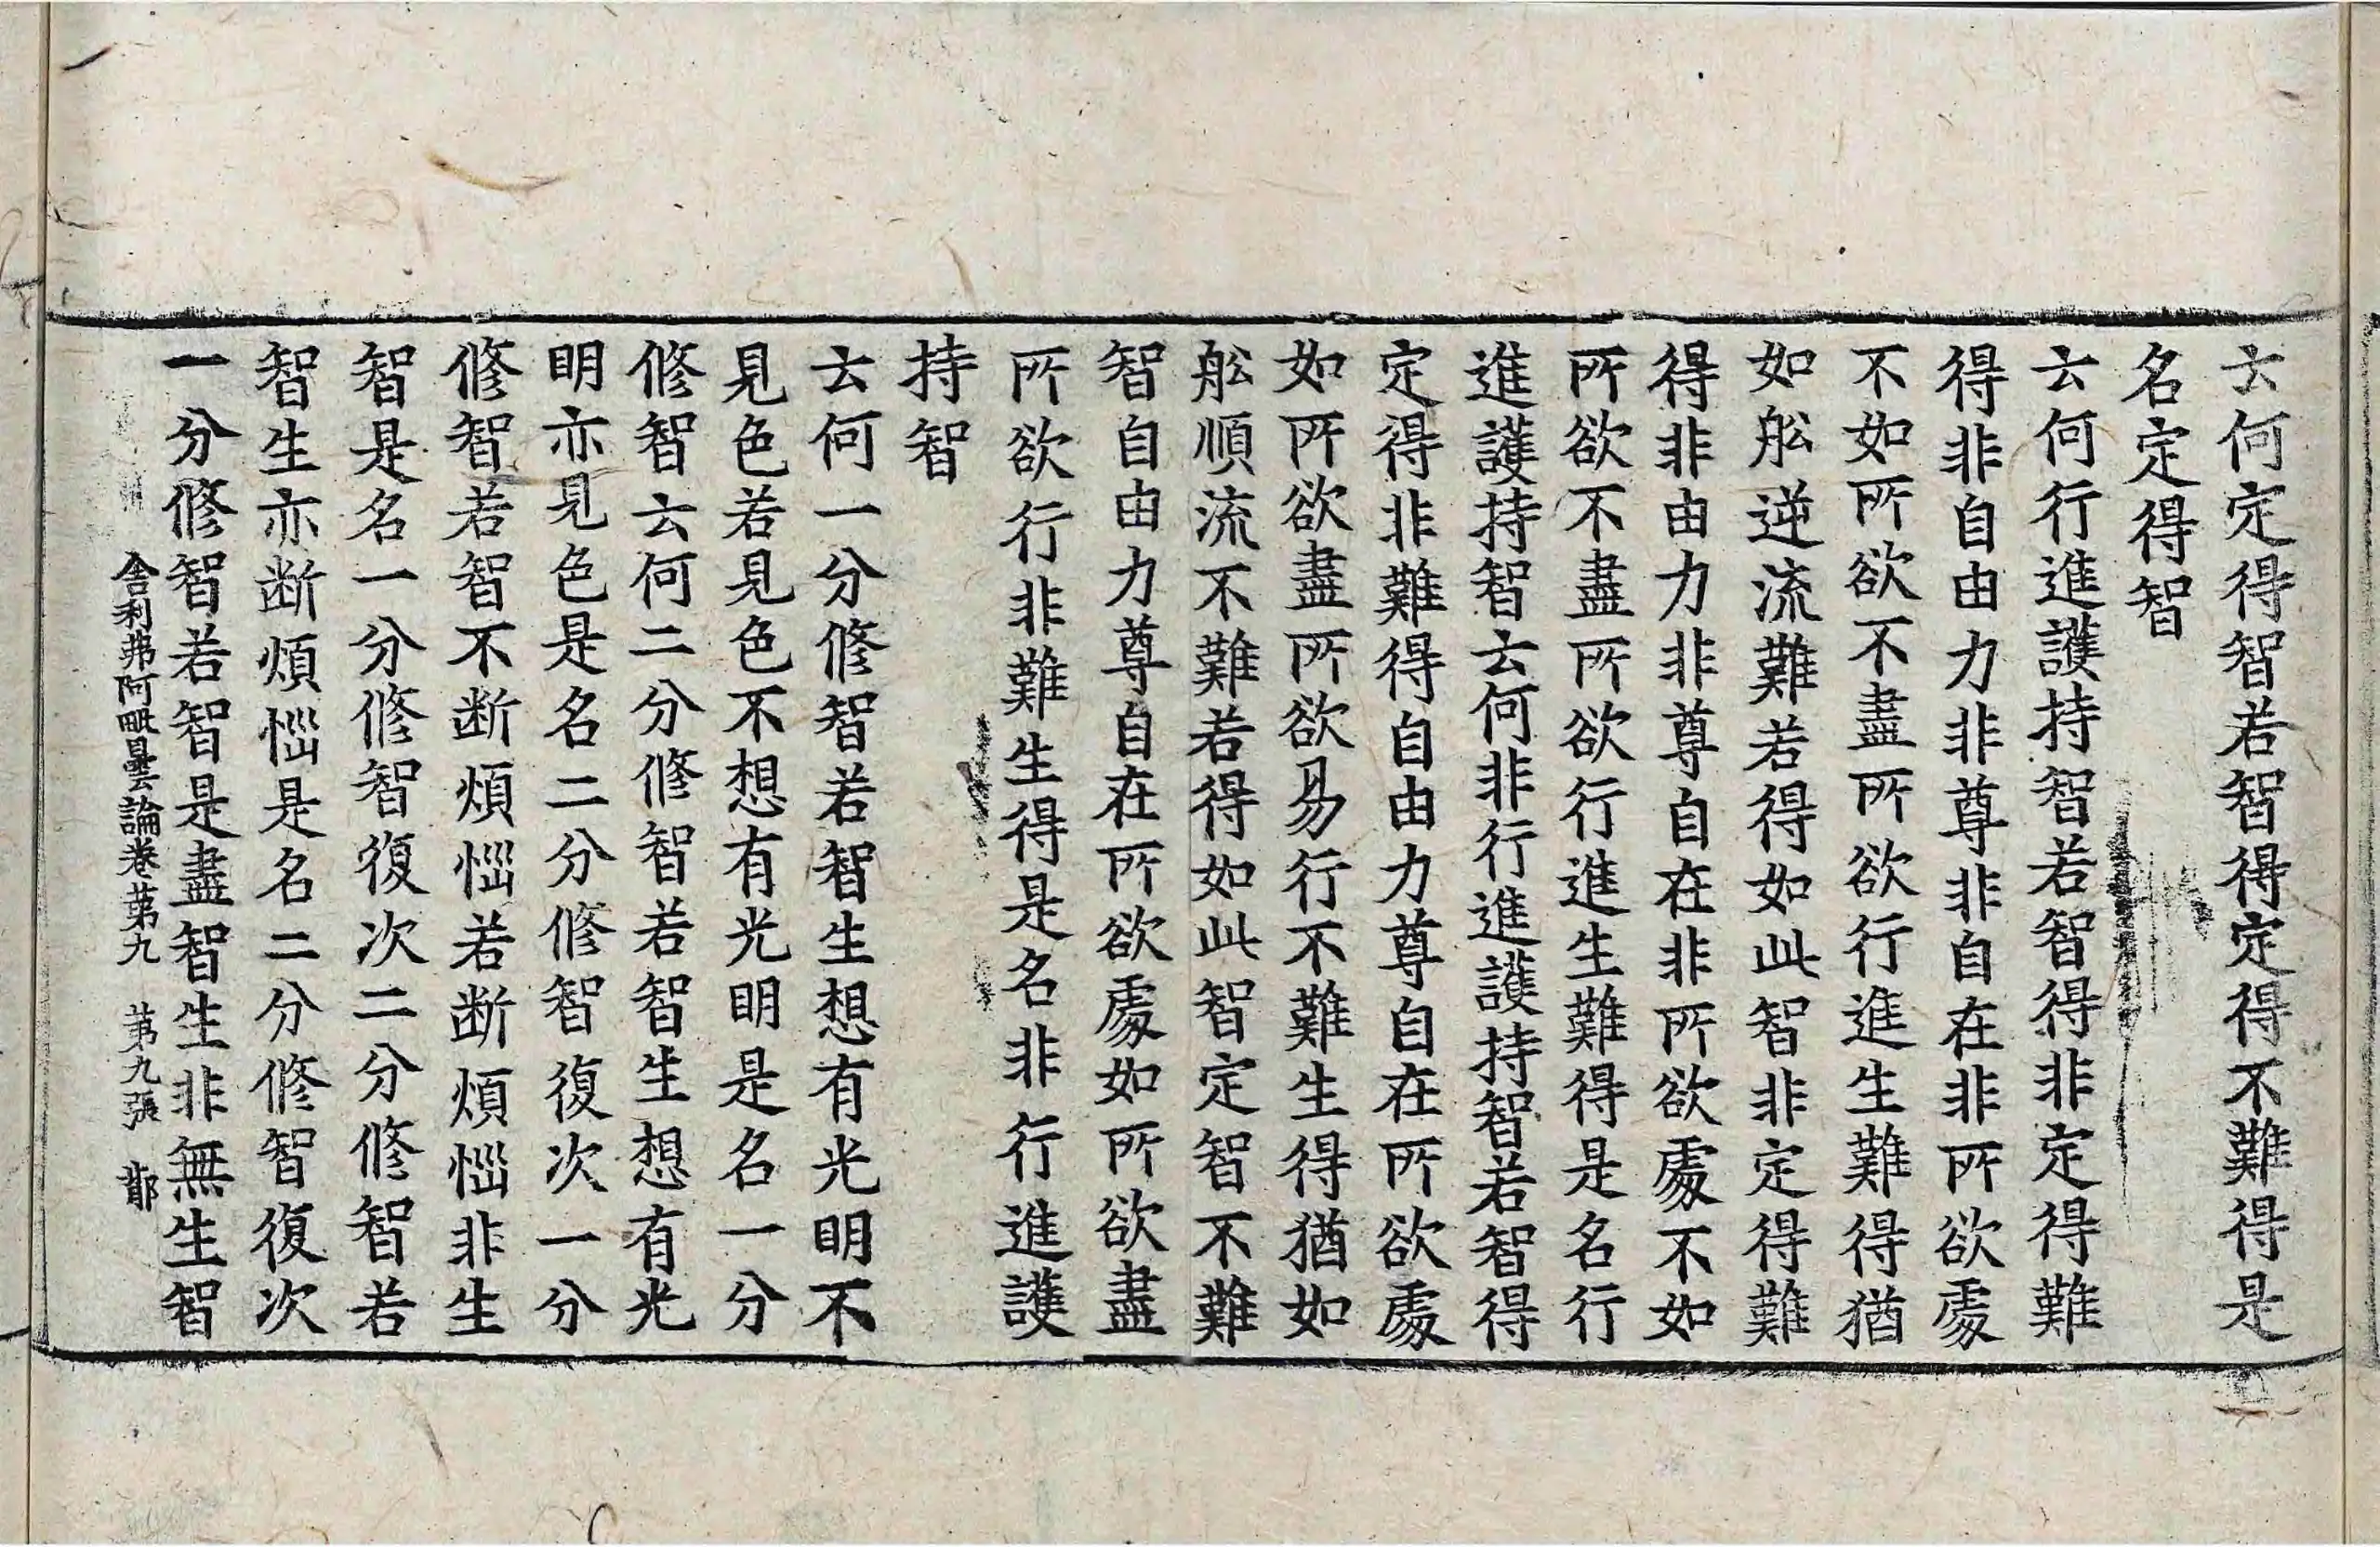 云何定得智若智得定得不難得是
名定得智
云何行進護持智若智得非定得難
得非自由力非尊非自在非所欲處
不如所欲不盡所欲行進生難得猶
如舩逆流難若得如此智非定得難
得非由力非尊自在非所欲處不如
所欲不盡所欲行進生難得是名行
進護持智云何非行進護持智若智得
定得非難得自由力尊自在所欲處
如所欲盡所欲易行不難生得猶如
舩順流不難若得如此智定智不難
智自由力尊自在所欲處如所欲盡
所欲行非難生得是名非行進護
持智
云何一分修智若智生想有光明不
見色若見色不想有光明是名一分
修智云何二分修智若智生想有光
明亦見色是名二分修智復次一分
修智若智不断煩惱若断煩惱非生
智是名一分修智復次二分修智若
智生亦断煩惱是名二分修智復次
一分修智若智是盡智生非無生智
舍利弗阿毗曇論卷苐九 苐九張 鄁